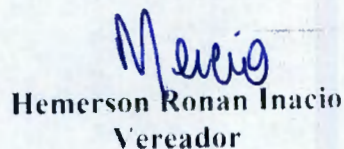 Hemerson Ronan Inacio
Vereador